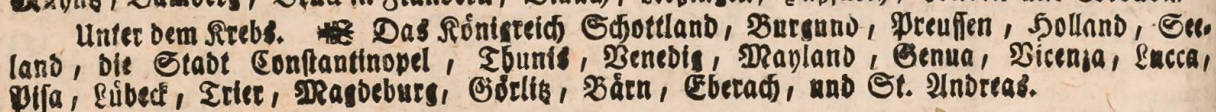 Unter dem Krebs. Das Königreich Schottland, Burgund, Preussen, Holland, See-
land, die Stadt Constantinopel, Thunis, Venedig, Mayland, Genua, Vicenza, Lucca,
Pisa, Lübeck, Trier, Magdeburg, Görlitz, Bärn, Eberach, und St. Andreas.